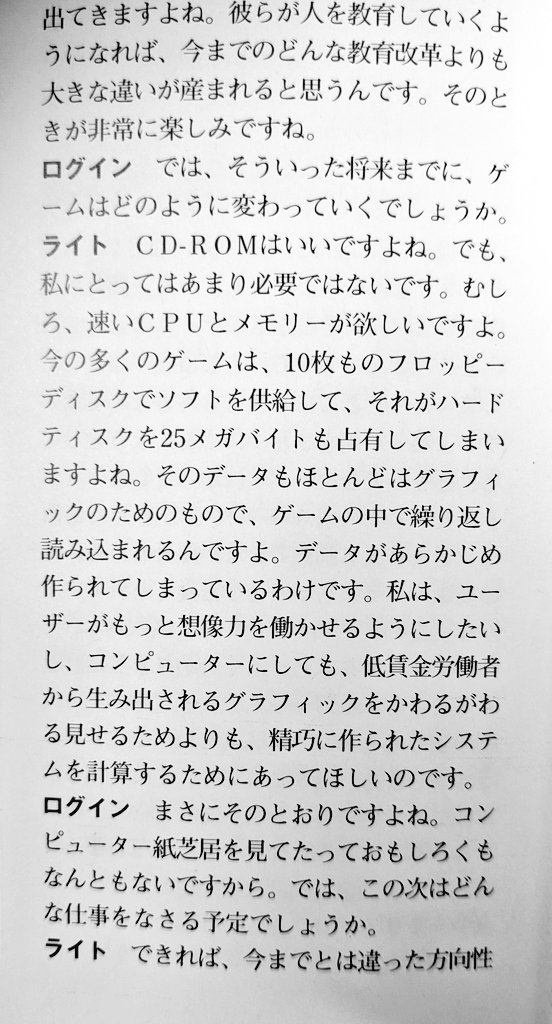 出てきますよね。彼らが人を教育していくよ
うになれば、今までのどんな教育改革よりも
大きな違いが産まれると思うんです。そのと
きが非常に楽しみですね。
ログイン　では、そういった将来までに、ゲ
ームはどのように変わっていくでしょうか。
ライト　ＣＤ-ＲＯＭはいいですよね。でも、
私にとってはあまり必要ではないです。むし
ろ、速いＣＰＵとメモリーが欲しいですよ。
今の多くのゲームは、10枚ものフロッピー
ディスクでソフトを供給して、それがハード
ティスクを25メガバイトも占有してしまい
ますよね。そのデータもほとんどはグラフィ
ックのためのもので、ゲームの中で繰り返し
読み込まれるんですよ。データがあらかじめ
作られてしまっているわけです。私は、ユー
ザーがもっと想像力を働かせるようにしたい
し、コンピューターにしても、低賃金労働者
から生み出されるグラフィックをかわるがわ
る見せるためよりも、精巧に作られたシステ
ムを計算するためにあってほしいのです。
ログイン　まさにそのとおりですよね。コン
ピューター紙芝居を見てたっておもしろくも
なんともないですから。では、この次はどん
な仕事をなさる予定でしょうか。
ライト　できれば、今までとは違った方向性